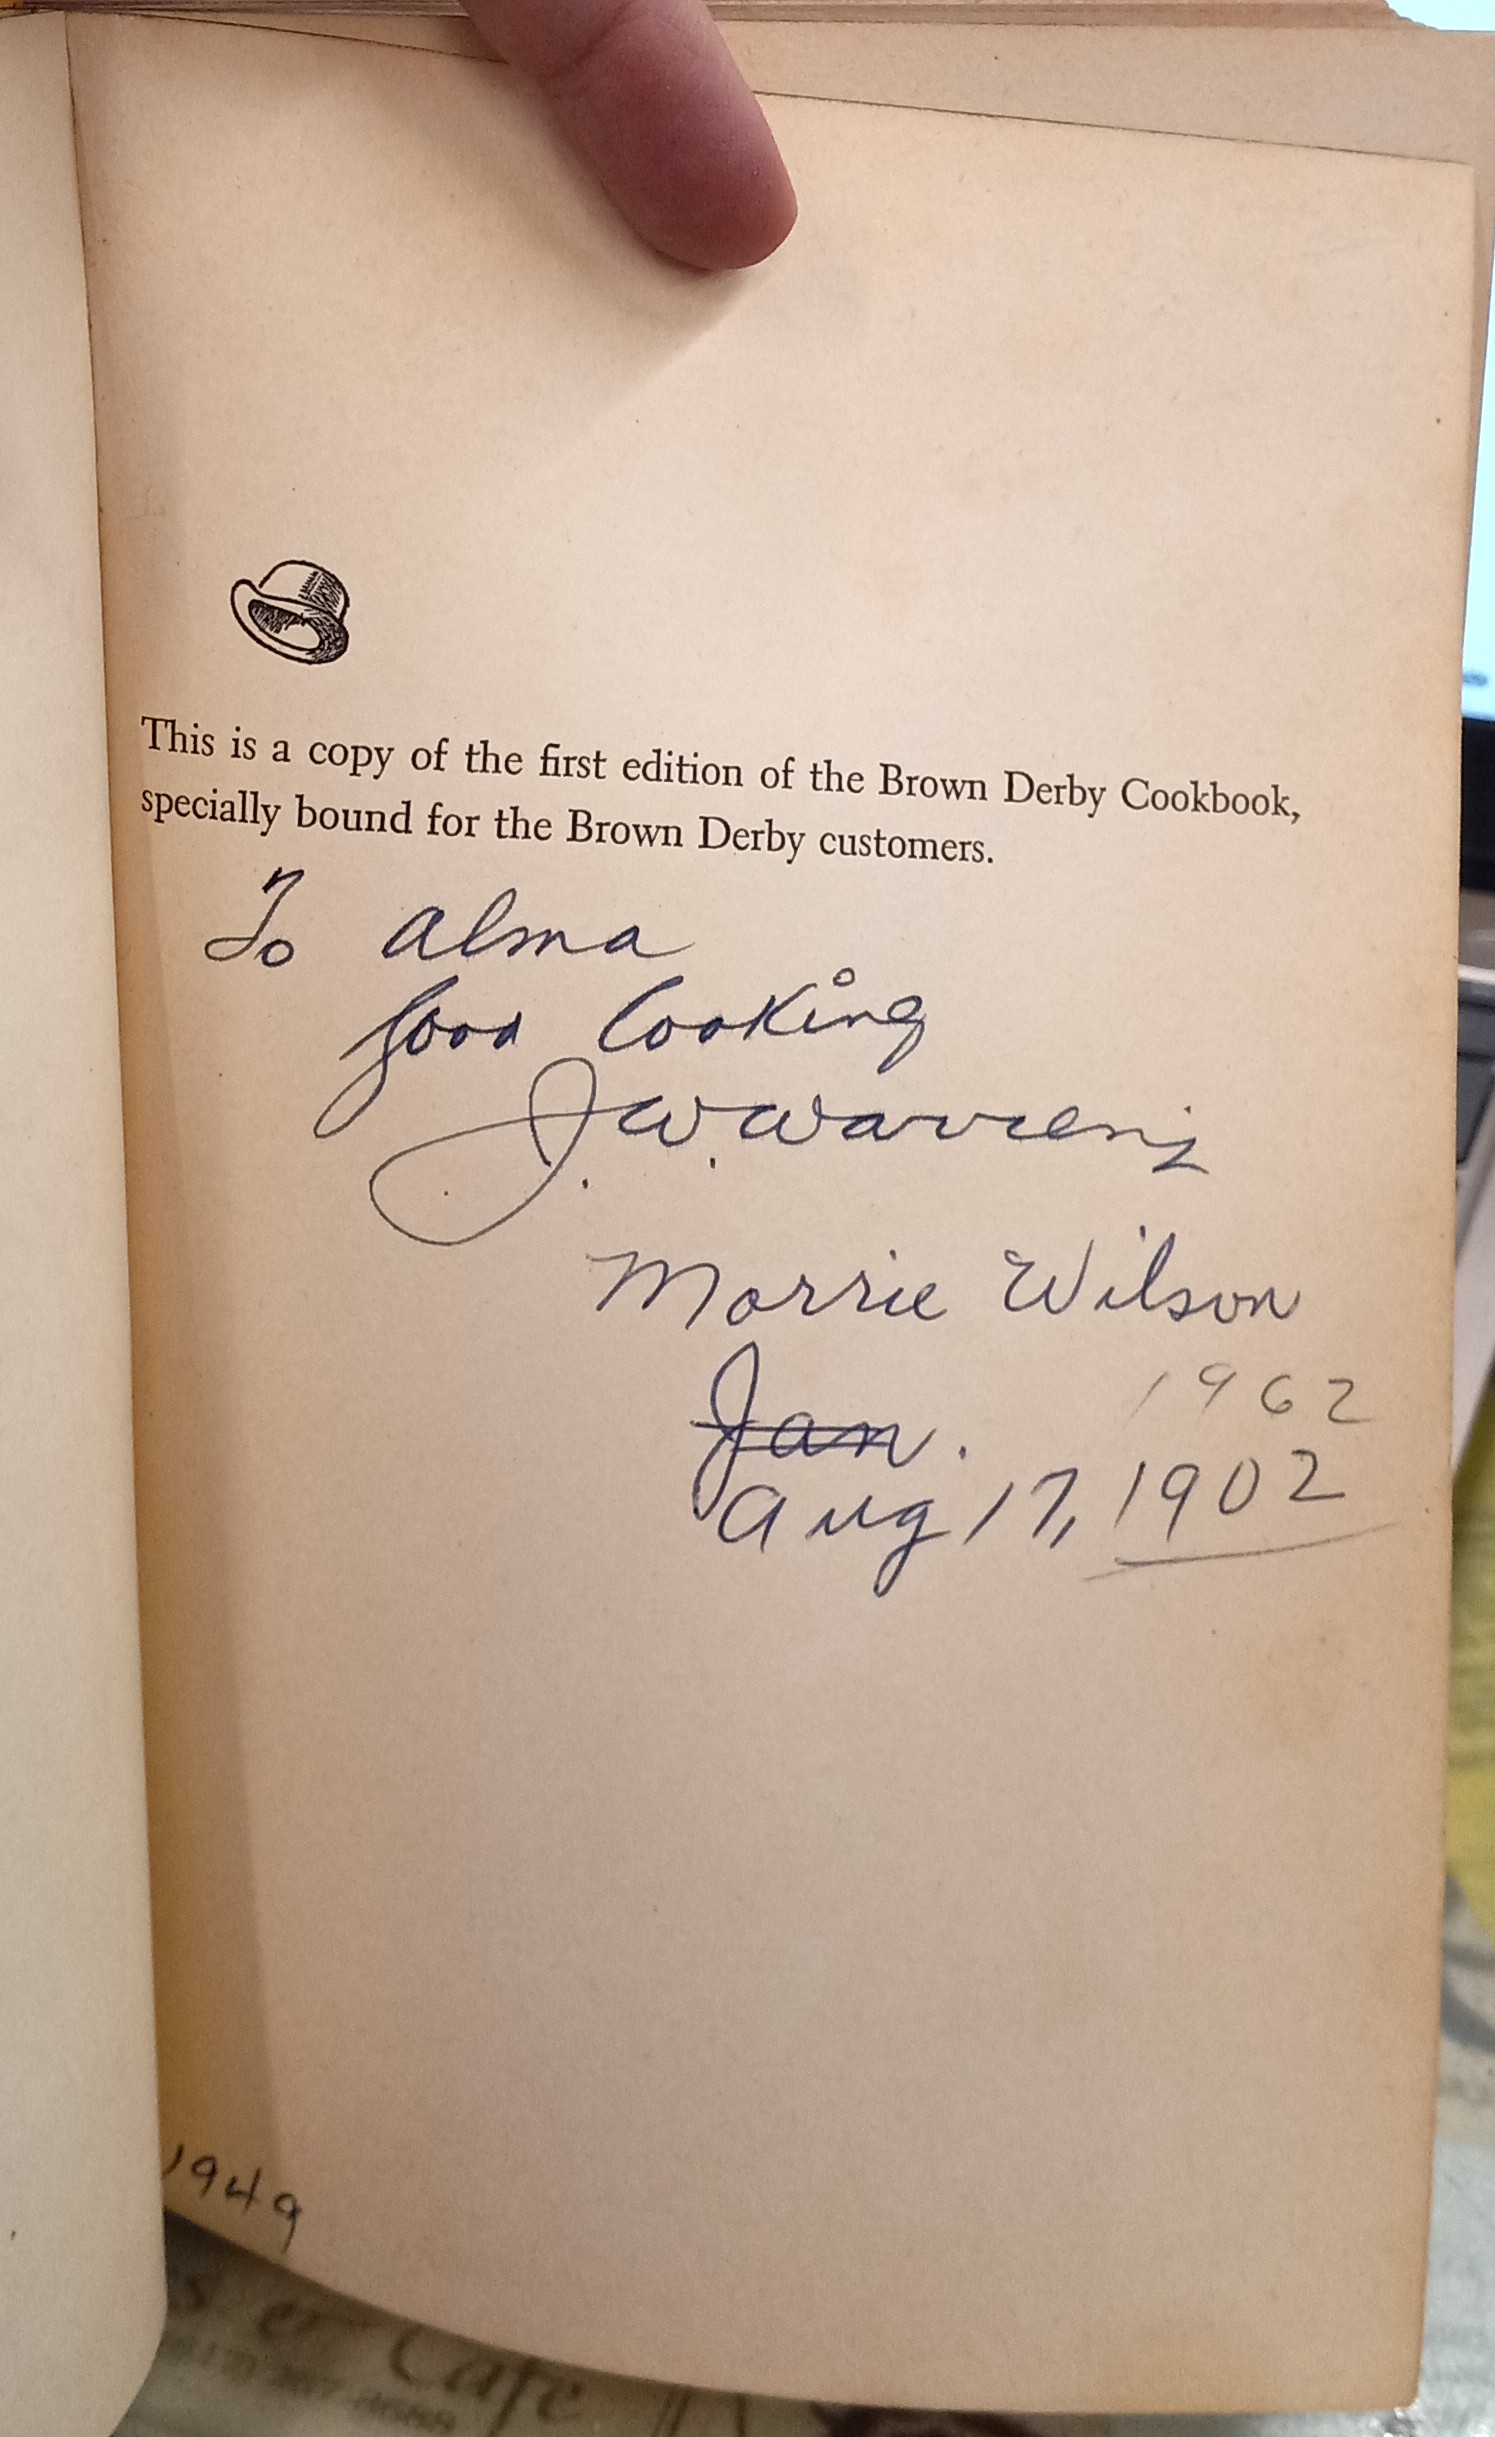 This is a copy of the first edition of the Brown Derby Cookbook,
specially bound for the Brown Derby customers.
To Alma
Good Cooking
J. W. Warren
Morrie Wilson
1962
Jan.
Aug 17, 1902
1949
Cafe